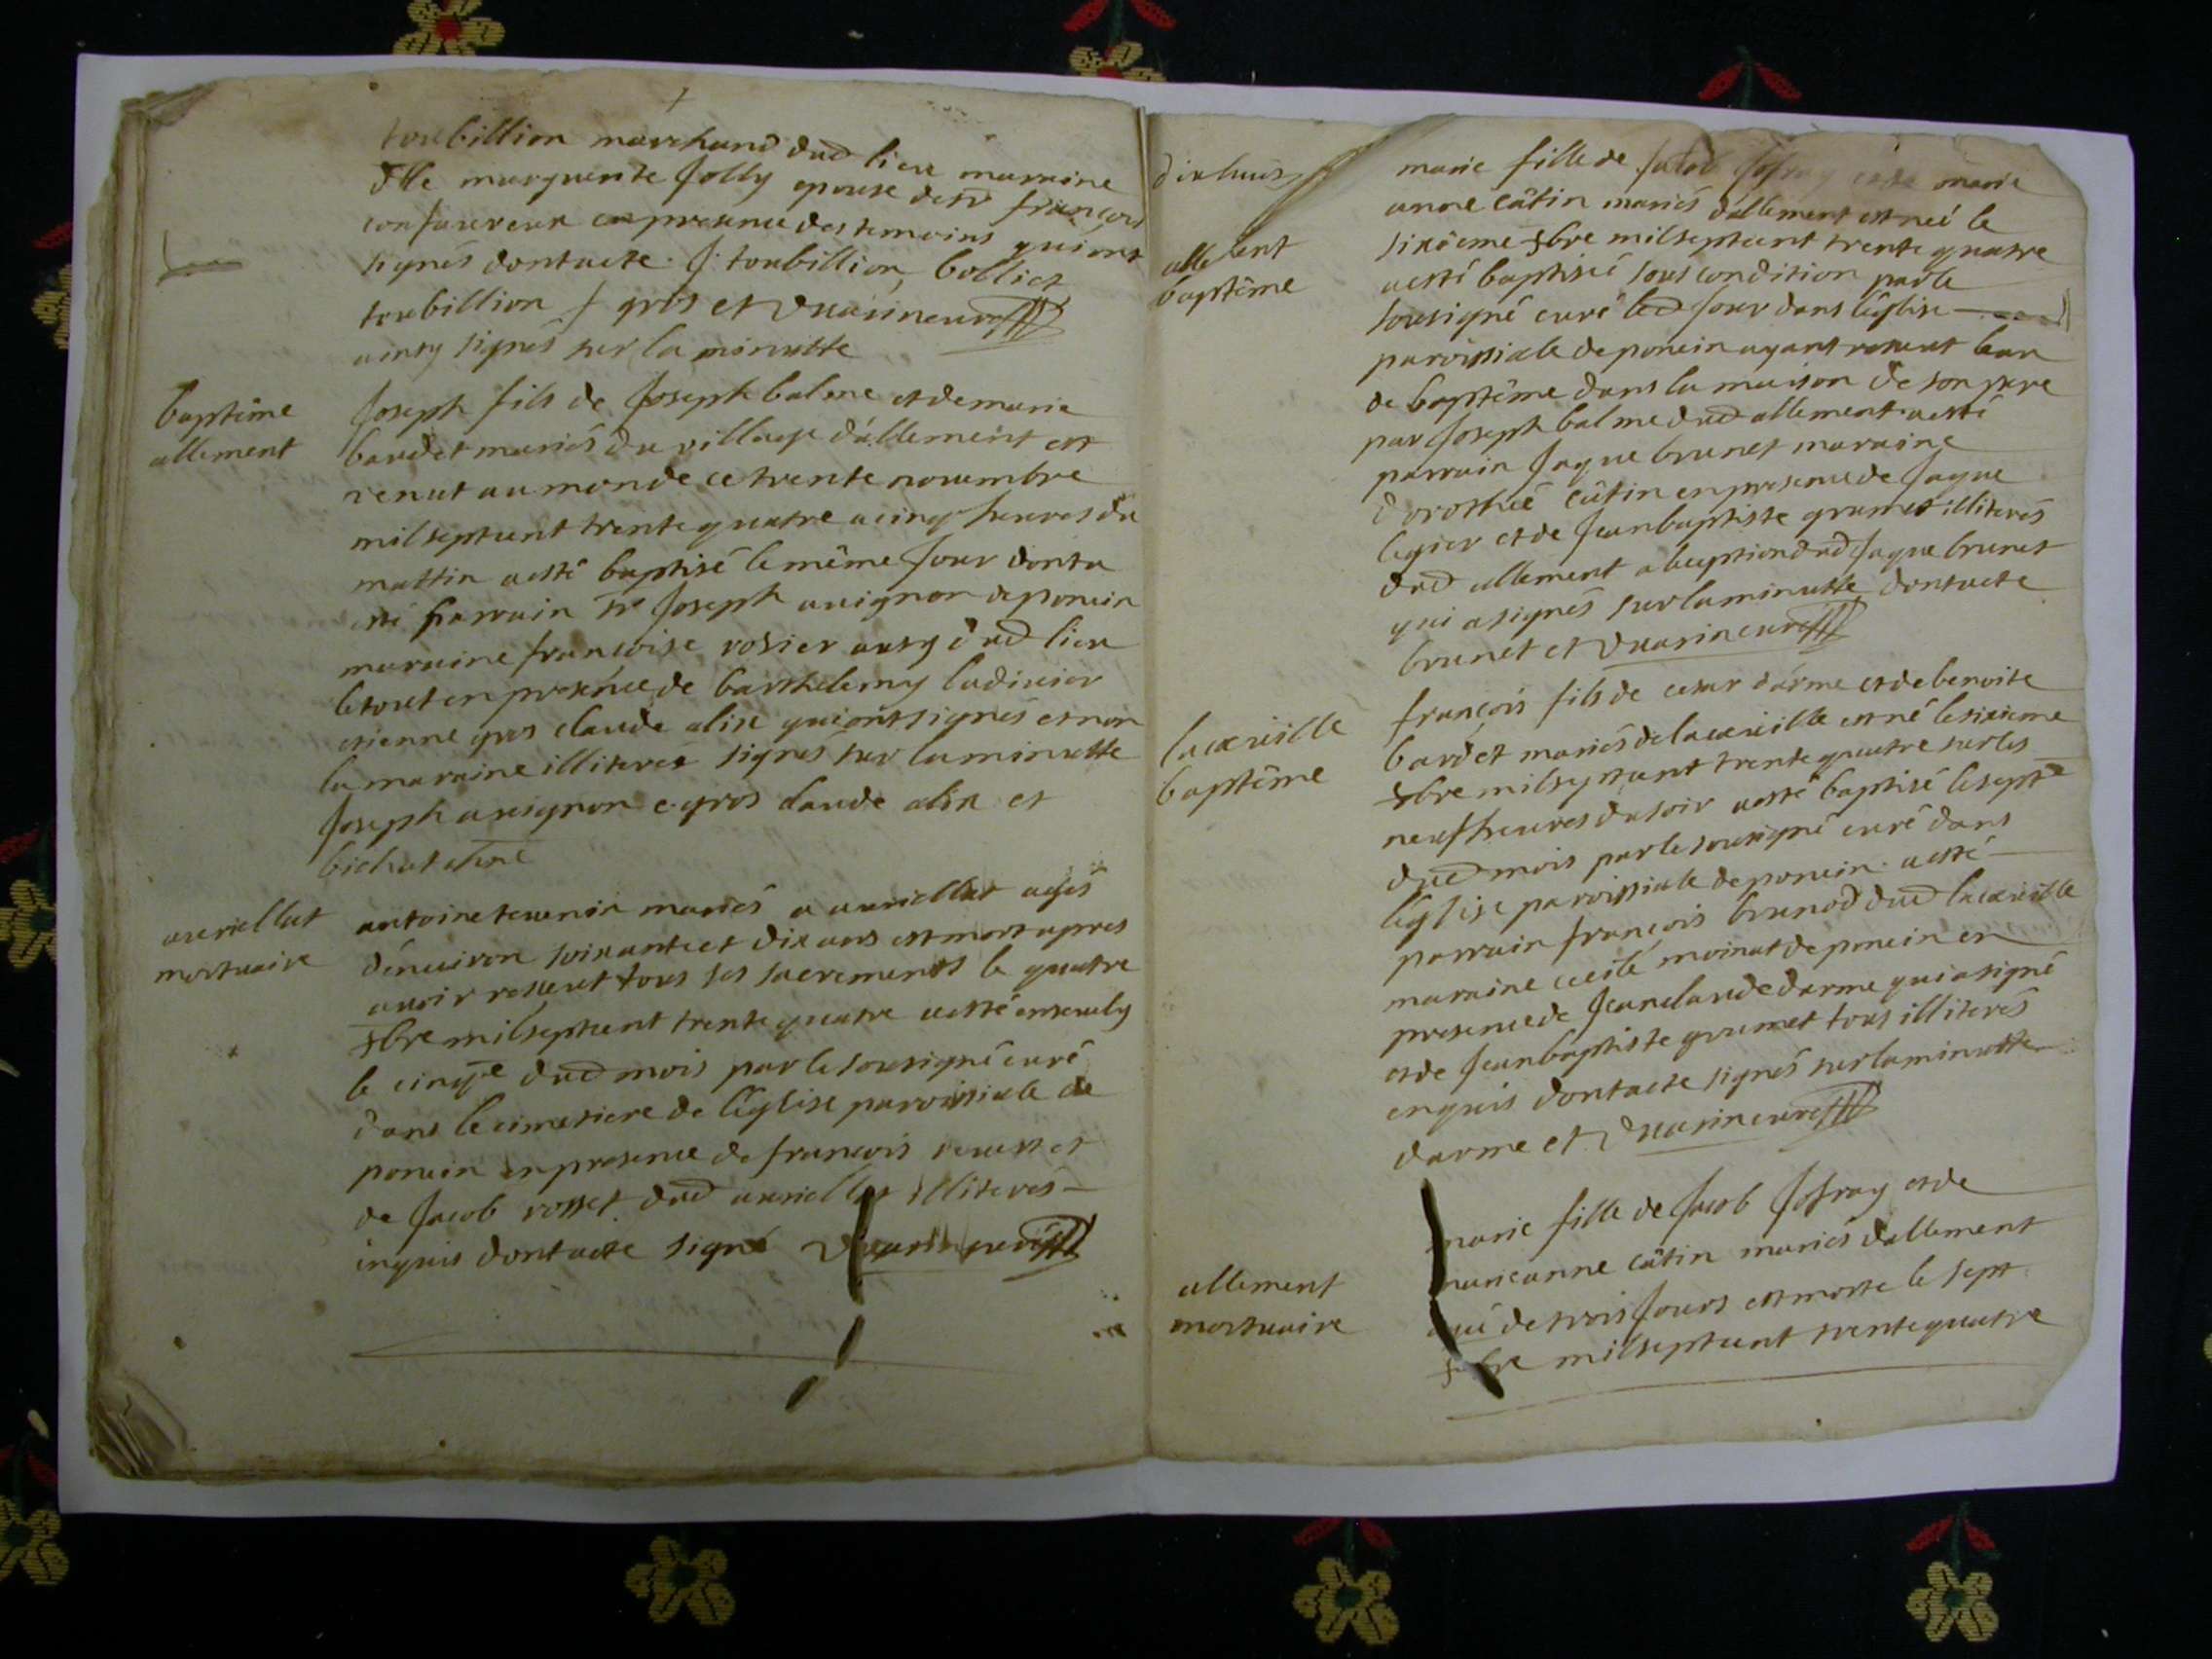 toubillion marchand dud lieu maraine
dlle marguerite Jolly epouse de sr françois
confavreux en presence des temoins qui ont
signés dont acte. J. toubillion, bolliet
toubillion J gros et Duvarin curé
ainsy signés sur la minutte
baptême
allement
Joseph fils de Joseph balme et de marie
baudet mariés du village d'allement est
venut au monde ce trente novembre
mil sept cent trente quatre a cinq heures du
mattin a esté baptisé le même jour dont a
été parrain sr Joseph avignon de poncin
maraine françoise rosier aussy dud lieu
le tout en presence de barthelemy ladivier
etienne gros claude alix qui ont signés et non
la maraine illiterée signés sur la minutte
Joseph avignon e. gros claude alix et
bichat
avrillat
mortuaire
antoine tevenin mariés a avrillat agés
d'environ soixante et dix ans est mort apres
avoir ressut tous ses sacrements le quatre
xbre mil sept cent trente quatre a esté ensevely
le cinqe dud mois par le sousigné curé
dans le cimetiere de l'église paroissiale de
poncin en presence de françois et
de Jacob rosset dud avrillat illiterés
inquis dont acte signé Duvarin curé
dixhuis
allement
baptême
marie fille de Jacob Jofray et de marie
anne câtin mariés d'allement est neé le
sixieme xbre mil sept cent trente quatre
a esté baptiseé sous condition par le
sousigné curé led jour dans l'église
paroissiale de poncin ayant ressut l'eau
de baptême dans la maison de son pere
par Joseph balme dud allement a esté
parrain Jaque brunet maraine
dorotheé câtin en presence de Jaque
legier et de Jean baptiste grumet illiterés
dud allement a l'exeption dud Jaque brunet
qui a signés sur la minutte dont acte
brunet et Duvarin curé
la
baptême
françois fils de cesar darme et de benoite
bardet mariés de la est né le sixieme
xbre mil sept cent trente quatre sur les
neuf heures du soir a esté baptisé le septe
dud mois par le sousigné curé dans
l'église paroissiale de poncin. a esté
parrain françois brunod dud la
maraine cecile moinat de poncin en
presence de Jean claude darme qui a signé
et de Jean baptiste grumet tous illiterés
enquis dont acte signés sur la minutte
darme et Duvarin curé
allement
mortuaire
marie fille de Jacob Jofray et de
marie anne câtin mariés d'allement
ageé de trois jours est morte le sept
xbre mil sept cent trente quatre